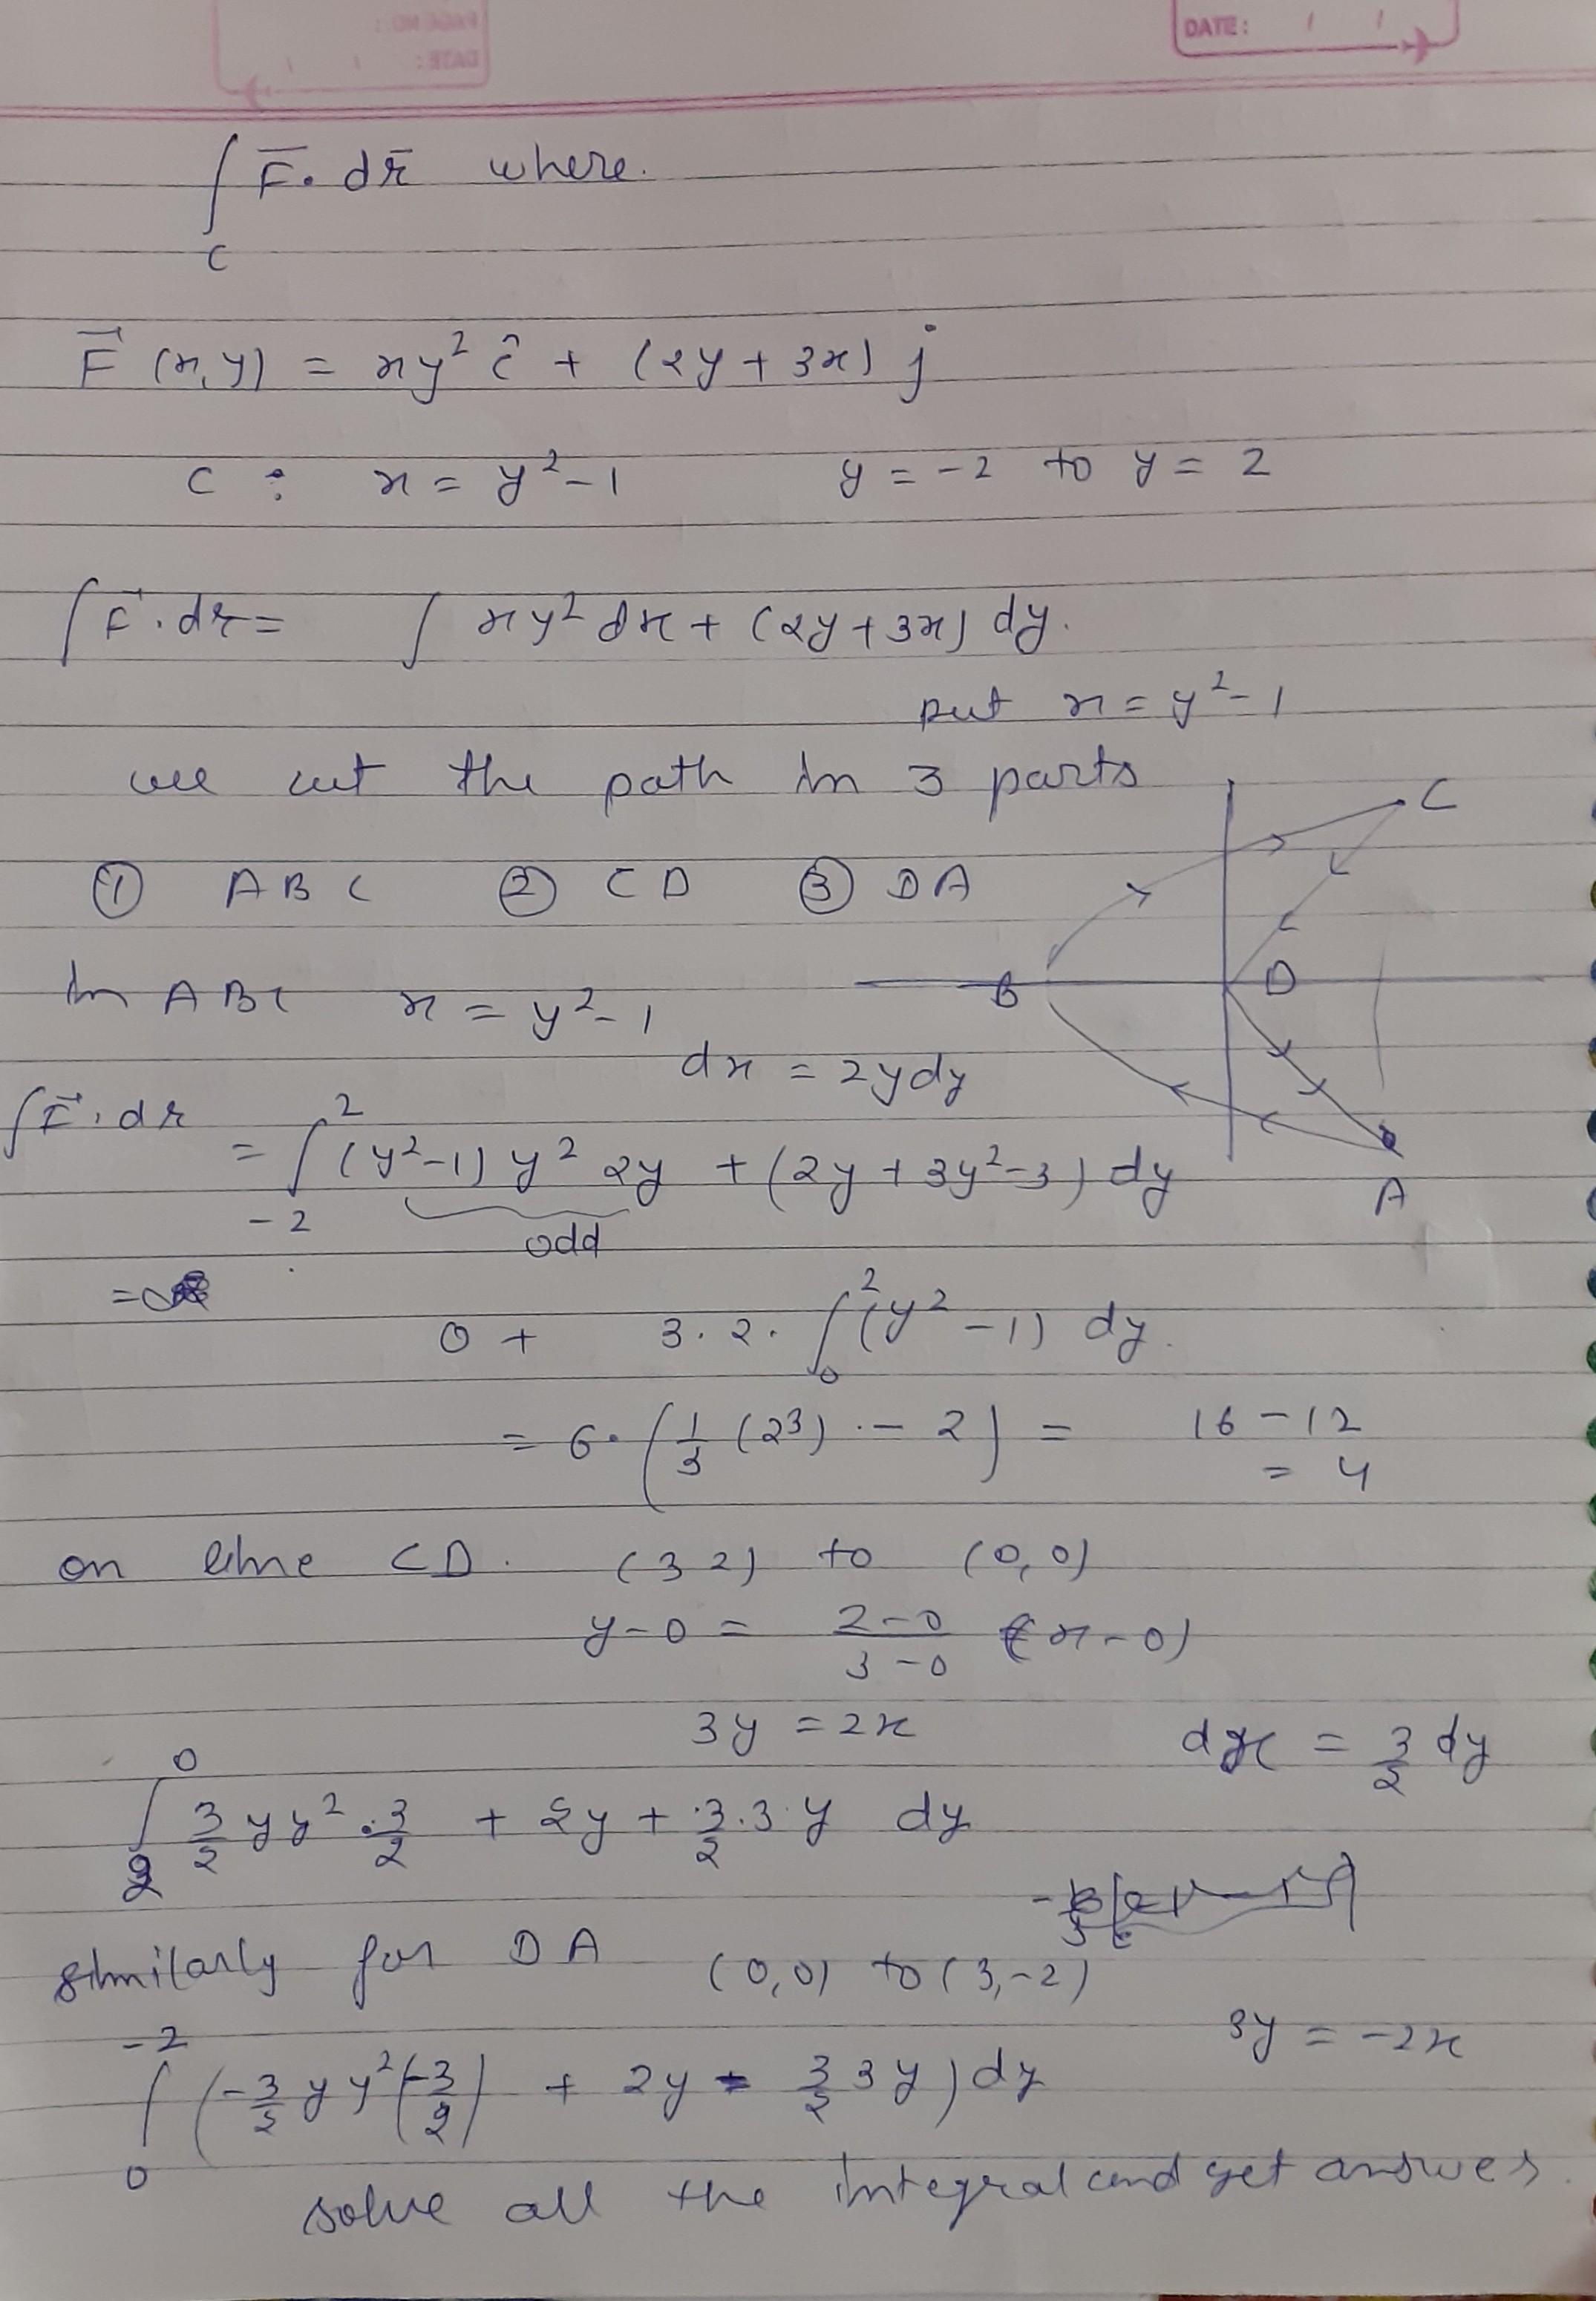 DATE: / /
∫_C F̄ . dr̄ where.
F⃗ (x,y) = xy² î + (2y + 3x) j
C : x = y² - 1 y = -2 to y = 2
∫ F⃗ . dr = ∫ xy² dx + (2y + 3x) dy.
put x = y² - 1
we cut the path in 3 parts
① ABC ② CD ③ DA
C
B
D
A
In ABC x = y² - 1
dx = 2ydy
∫ F⃗ . dr = ∫_{-2}^{2} (y² - 1) y² 2y + (2y + 3y² - 3) dy
odd
=
0 + 3 . 2 . ∫_0^2 (y² - 1) dy.
= 6 . (1/3 (2³) - 2) = 16 - 12
= 4
on line CD. (3 2) to (0,0)
y - 0 = (2 - 0)/(3 - 0) (x - 0)
3y = 2x dx = 3/2 dy
∫_2^0 3/2 y y² . 3/2 + 2y + 3/2 . 3 . y dy
similarly for DA (0,0) to (3,-2)
3y = -2x
∫_0^{-2} (-3/2 y y² (-3/2) + 2y - 3/2 3y) dy
solve all the integral and get answer.